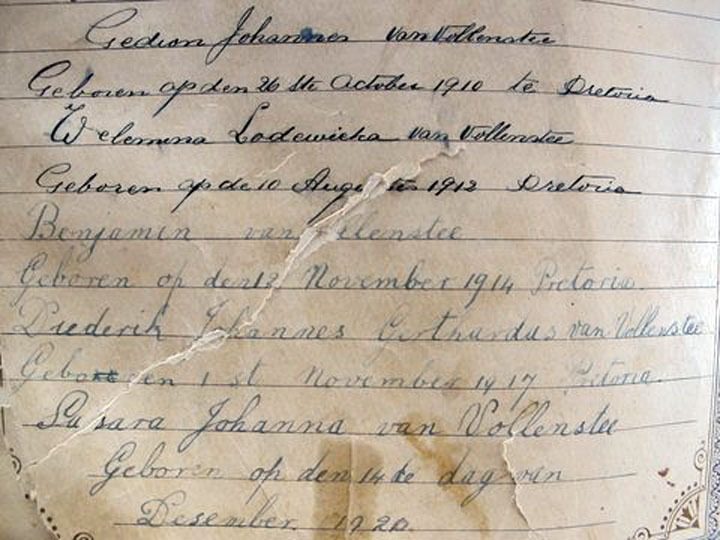 Gedion Johannes van Vollenstee
Geboren op den 26 ste October 1910 te Pretoria
Welemina Lodewicka van Vollenstee
Geboren op de 10 Augustes 1912 Pretoria
Benjamin van Vollenstee
Geboren op den 12 November 1914 Pretoria.
Diederik Johannes Gerthardus van Vollenstee
Geboren 1 st November 1917 Pretoria.
Susara Johanna van Vollenstee
Geboren op den 14 de dag van
Desember 1920.